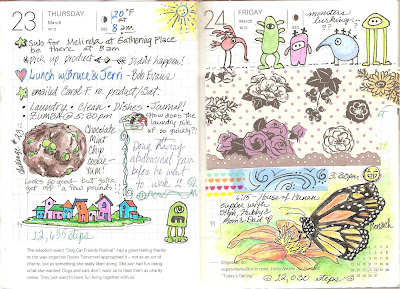 23
THURSDAY
March
W12
20°F
at
8am
Sub for Melinda at Gathering Place
be there at 8am
pick up product
didn't happen!
Lunch w/Bruce & Jerri - Bob Evans
emailed Carol F. re. product/
Laundry - Clean - Dishes - Journal!
ZUMBA @ 5:30 pm
How does the
laundry pile
up so quickly?!
Chocolate
Mint
Chip
Cookie
yum!
Doug
abdominal
pain
before he went
to work!!
Looks good - but
get me a few pounds!
12,655 steps
The adoption event "Dog Cat Friendly Festival" had a great feeling thanks
to the way organizer Rocks Tomorrod approached it – not as an act of
charity, but as something she really liked doing. She just had fun doing
what she wanted. Dogs and cats don't want us to treat them as charity
cases. They just want to have fun living together with us.
24
FRIDAY
March
W12
monsters
lurking...
??
3:30pm
6:15 House of Hunan
supper with
Mom, Hubby &
Mom & Dad
Monarch
12,030 steps